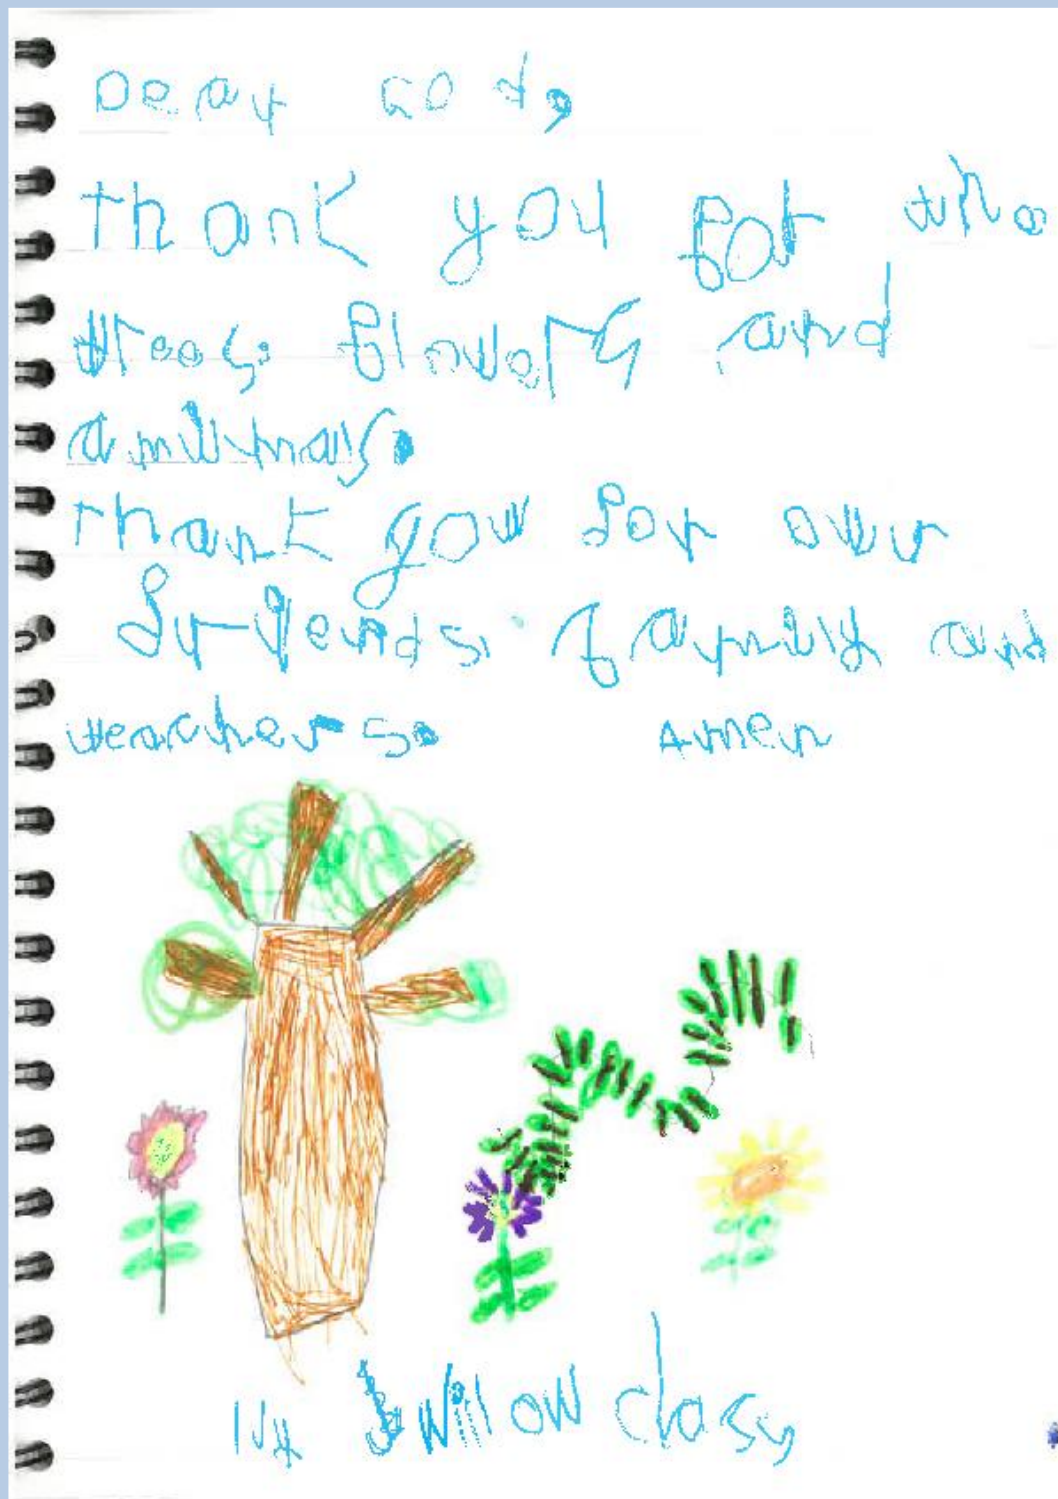 Dear God,
thank you for the
trees. flowers and
animals.
thank you for our
friends. family and
teachers. Amen
Willow class